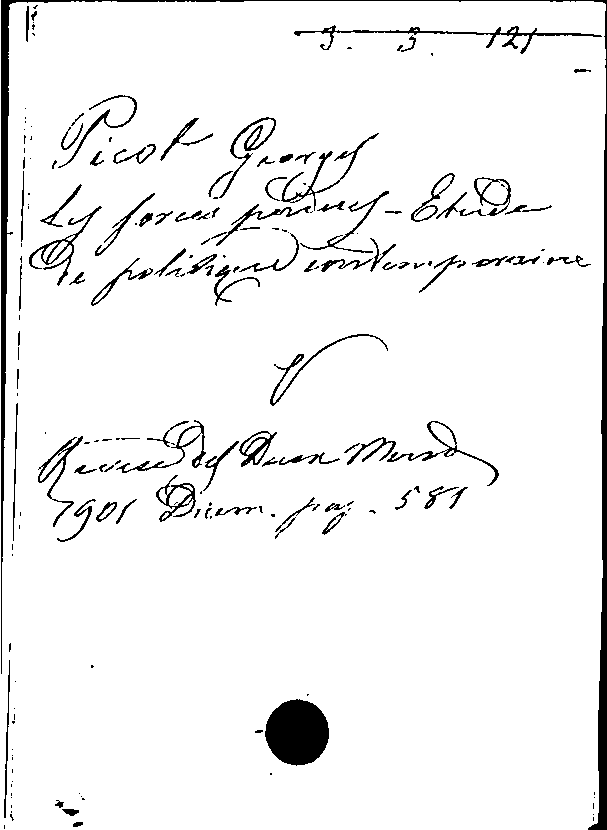 3. 3. 121
Picot Georges
Les forces perdues - Etude
de politique contemporaine
V
Revue des Deux Mond
1901 Dicem. pag. 581